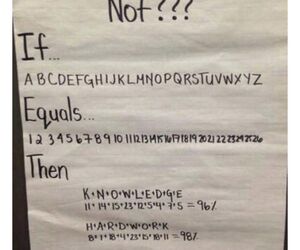 Not???
If...
A B C D E F G H I J K L M N O P Q R S T U V W X Y Z
Equals...
1 2 3 4 5 6 7 8 9 10 11 12 13 14 15 16 17 18 19 20 21 22 23 24 25 26
Then
K+N+O+W+L+E+D+G+E
11+14+15+23+12+5+4+7+5=96%
H+A+R+D+W+O+R+K
8+1+18+4+23+15+18+11=98%